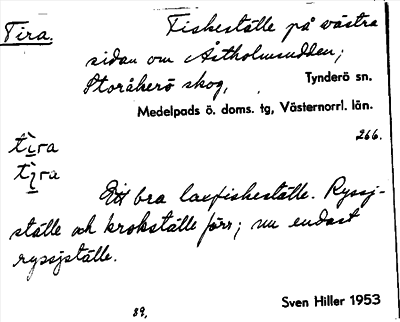 Tira. Fiskeställe på västra
sidan om Åstholmsudden;
Storåkerö skog, Tynderö sn.
Medelpads ö. doms. tg, Västernorrl. län.
266.
tìra
tìra
Ett bra laxfiskeställe. Ryssj-
ställe och krokställe förr; nu endast
ryssjställe.
89, Sven Hiller 1953